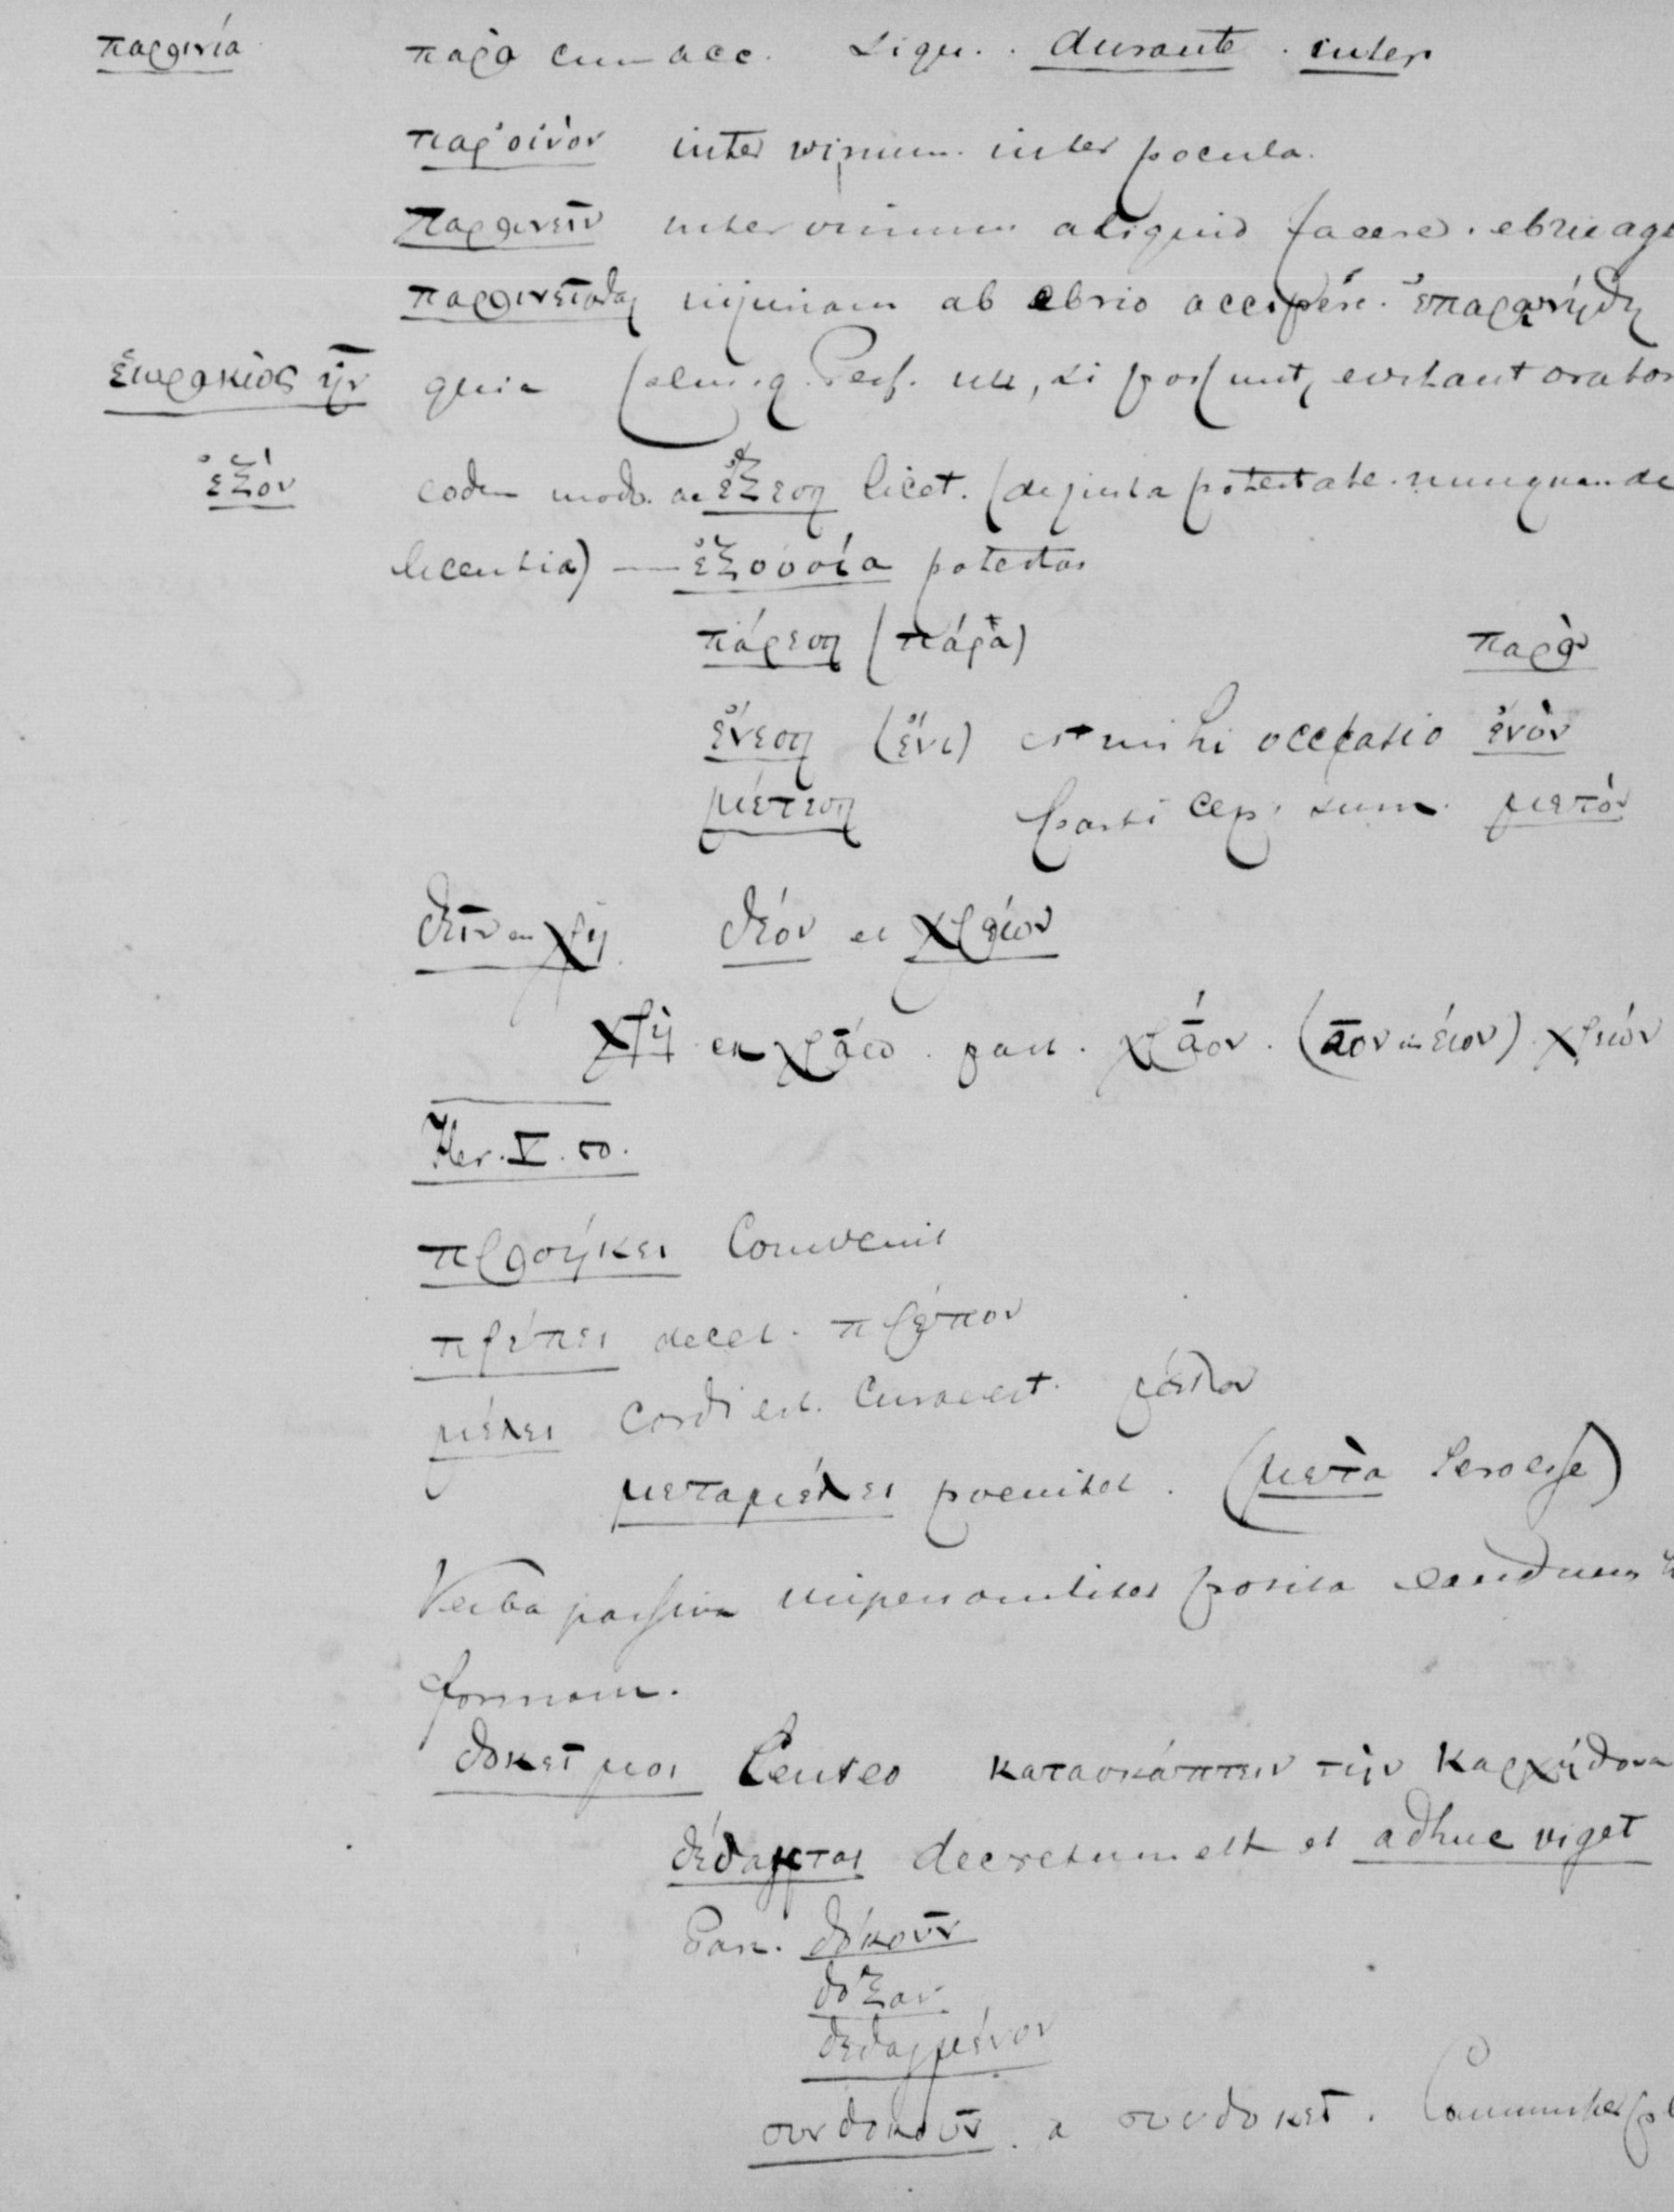 παροινία παρὰ cum acc. sign. durante. inter
παρ' οἶνον inter vinum. inter pocula.
παροινεῖν inter vinum aliquid facere. ebrie age
παροινεῖσθαι injuriam ab ebrio accipere. ἐπαρῳνήθη
ἑωρακὼς ἦν quia Perf. si possunt, evitant orator
ἐξὸν eodem modo ac ἔξεστι licet. (de justa potestate. nunquam de
licentia) — ἐξουσία potestas
πάρεστι (πάρα) παρὸν
ἔνεστι (ἔνι) est mihi occasio ἐνὸν
μέτεστι particeps sum. μετὸν
δεῖν en χρὴ δέον et χρέων
χρὴ en χράω. part. χράον. (ᾱον in έων) χρεών
Her. V. 50.
προσήκει convenit
πρέπει decet. πρέπον
μέλει cordi est. Curae est. μέλον
μεταμέλει poenitet. (μετὰ sero esse)
Verba passiva impersonaliter posita eandem h
formam.
δοκεῖ μοι Censeo κατασκάπτειν τὴν Καρχηδόνα
δέδοκται decretum est et adhuc viget
Part. δοκοῦν
δόξαν
δεδογμένον
συνδοκοῦν. a συνδοκεῖ. Communiter pl